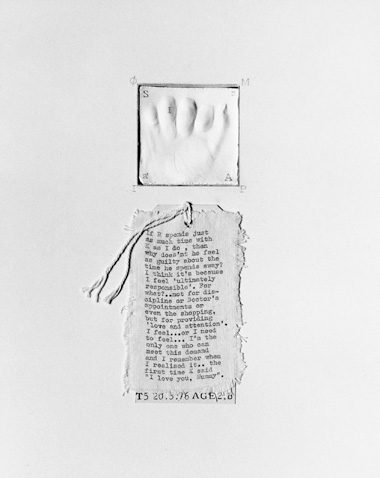 Ø M
S F
A
R
If R spends just
as much time with
K as I do , than
why does'nt he feel
as guilty about the
time he spends away?
I think it's because
I feel 'ultimately
responsible'. For
what?..not for dis-
cipline or Doctor's
appointments or
even the shopping,
but for providing
'love and attention'.
I feel...or I need
to feel... I'm the
only one who can
meet this demand
and I remember when
I realised it.. the
first time K said
"I love you, Mummy".
T5 20.5.76 AGE 2.8